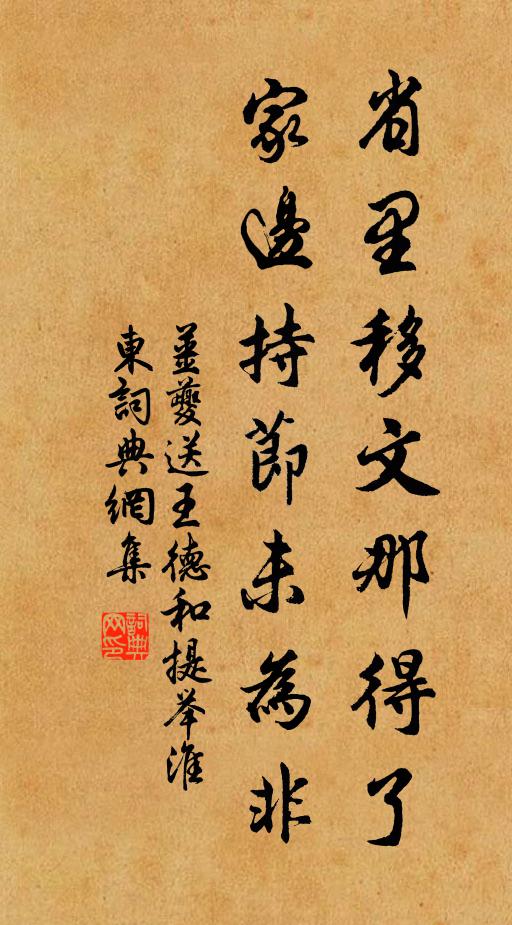 省里移文那得了
家邊持節未為非
姜夔送王德和提举淮
東詞典網集
詞典
网印